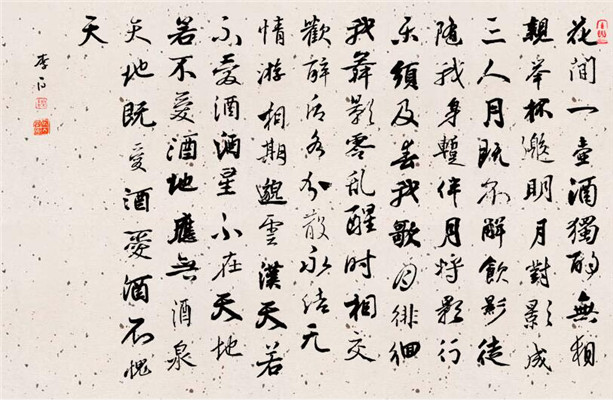 花間一壺酒獨酌無相
親举杯邀明月對影成
三人月既不解飲影徒
隨我身暫伴月將影行
乐須及春我歌月徘徊
我舞影零乱醒时相交
歡醉后各分散永结无
情游相期邈雲漢天若
不愛酒酒星不在天地
若不愛酒地應無酒泉
天地既愛酒愛酒不愧
天
李白